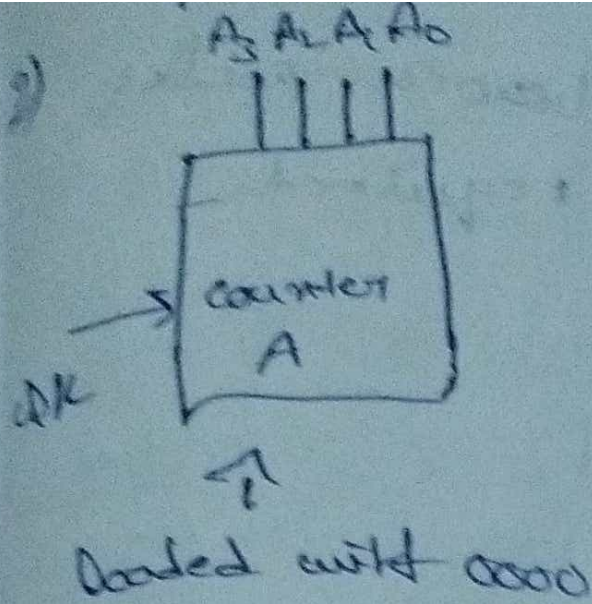 A3 A2 A1 A0
counter
A
clk
Loaded with 0000